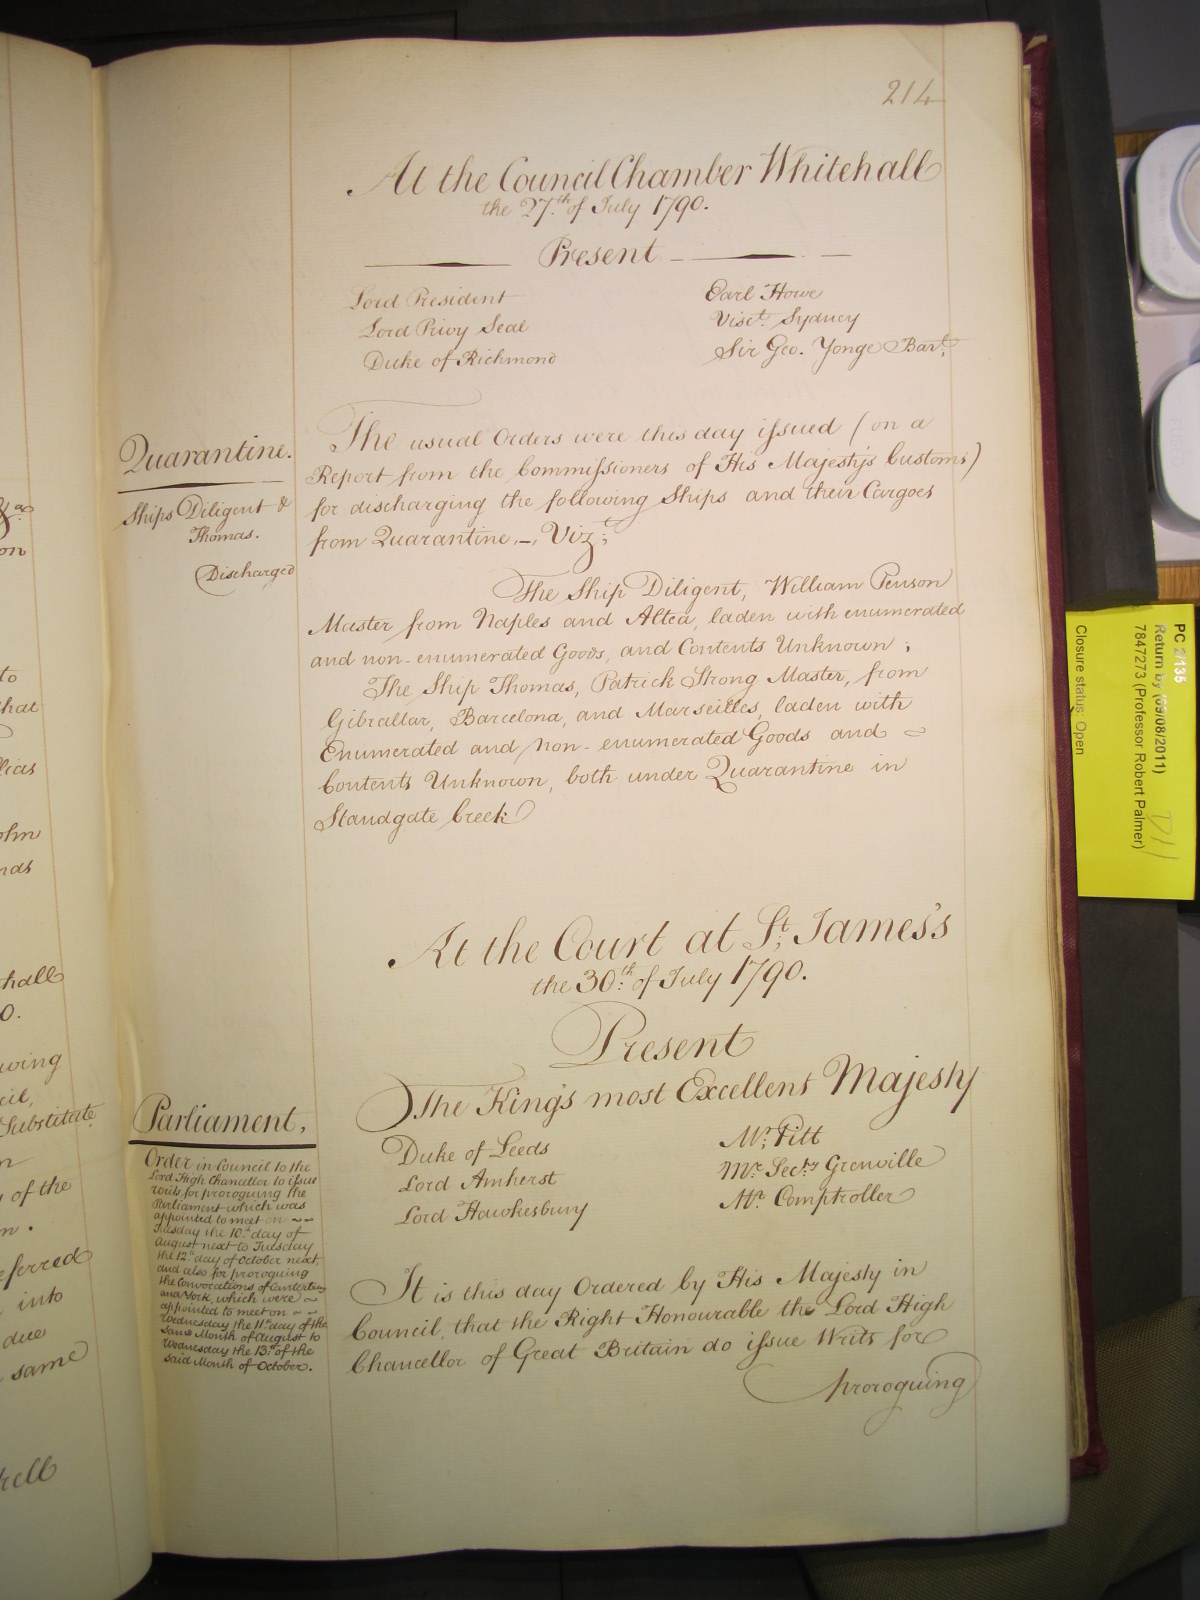 214
At the Council Chamber Whitehall
the 27.th of July 1790.
Present
Lord President
Lord Privy Seal
Duke of Richmond
Earl Howe
Visct. Sydney
Sir Geo. Yonge Bart.
Quarantine.
Ships Diligent &
Thomas.
Discharged
The usual Orders were this day issued (on a
Report from the Commissioners of His Majesty's Customs)
for discharging the following Ships and their Cargoes
from Quarantine, Vizt;
The Ship Diligent, William Penson
Master from Naples and Altea, laden with enumerated
and non-enumerated Goods, and Contents Unknown;
The Ship Thomas, Patrick Strong Master, from
Gibraltar, Barcelona, and Marseilles, laden with
Enumerated and non-enumerated Goods and
Contents Unknown, both under Quarantine in
Standgate Creek
At the Court at St. James's
the 30.th of July 1790.
Present
The King's most Excellent Majesty
Duke of Leeds
Lord Amherst
Lord Hawkesbury
Mr. Pitt
Mr. Secry Grenville
Mr. Comptroller
Parliament,
Order in Council to the
Lord High Chancellor to issue
writs for proroguing the
Parliament which was
appointed to meet on
Tuesday the 10.th day of
August next to Tuesday
the 12.th day of October next,
and also for proroguing
the Convocations of Canterbury
and York, which were
appointed to meet on
Wednesday the 11.th day of the
same Month of August to
Wednesday the 13.th of the
said Month of October.
It is this day Ordered by His Majesty in
Council, that the Right Honourable the Lord High
Chancellor of Great Britain do issue Writs for
proroguing
on
to
that
ohn
hall
0.
Substitute
of the
into
due
same
PC 2/135
Return by (09/08/2011)
7847273 (Professor Robert Palmer)
Closure status: Open
D11